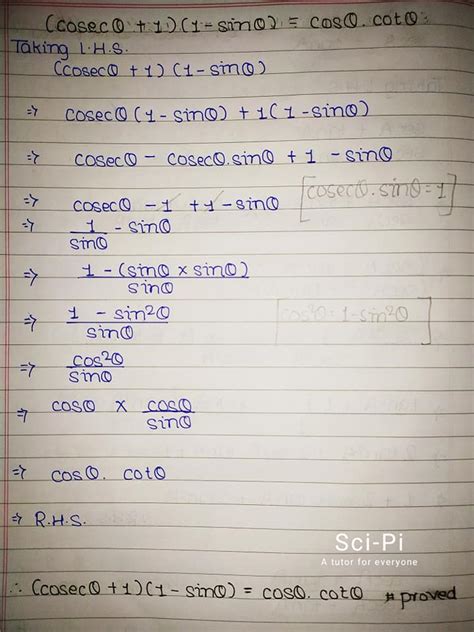 (cosecθ + 1)(1 - sinθ) = cosθ. cotθ.
Taking L.H.S.
(cosecθ + 1) (1 - sinθ)
⇒ cosecθ (1 - sinθ) + 1(1 - sinθ)
⇒ cosecθ - cosecθ.sinθ + 1 - sinθ
⇒ cosecθ - 1 + 1 - sinθ [cosecθ.sinθ = 1]
⇒ 1/sinθ - sinθ
⇒ 1 - (sinθ × sinθ)/sinθ
⇒ 1 - sin²θ/sinθ [cos²θ = 1 - sin²θ]
⇒ cos²θ/sinθ
⇒ cosθ × cosθ/sinθ
⇒ cosθ. cotθ
⇒ R.H.S.
Sci-Pi
A tutor for everyone
∴ (cosecθ + 1)(1 - sinθ) = cosθ. cotθ # proved